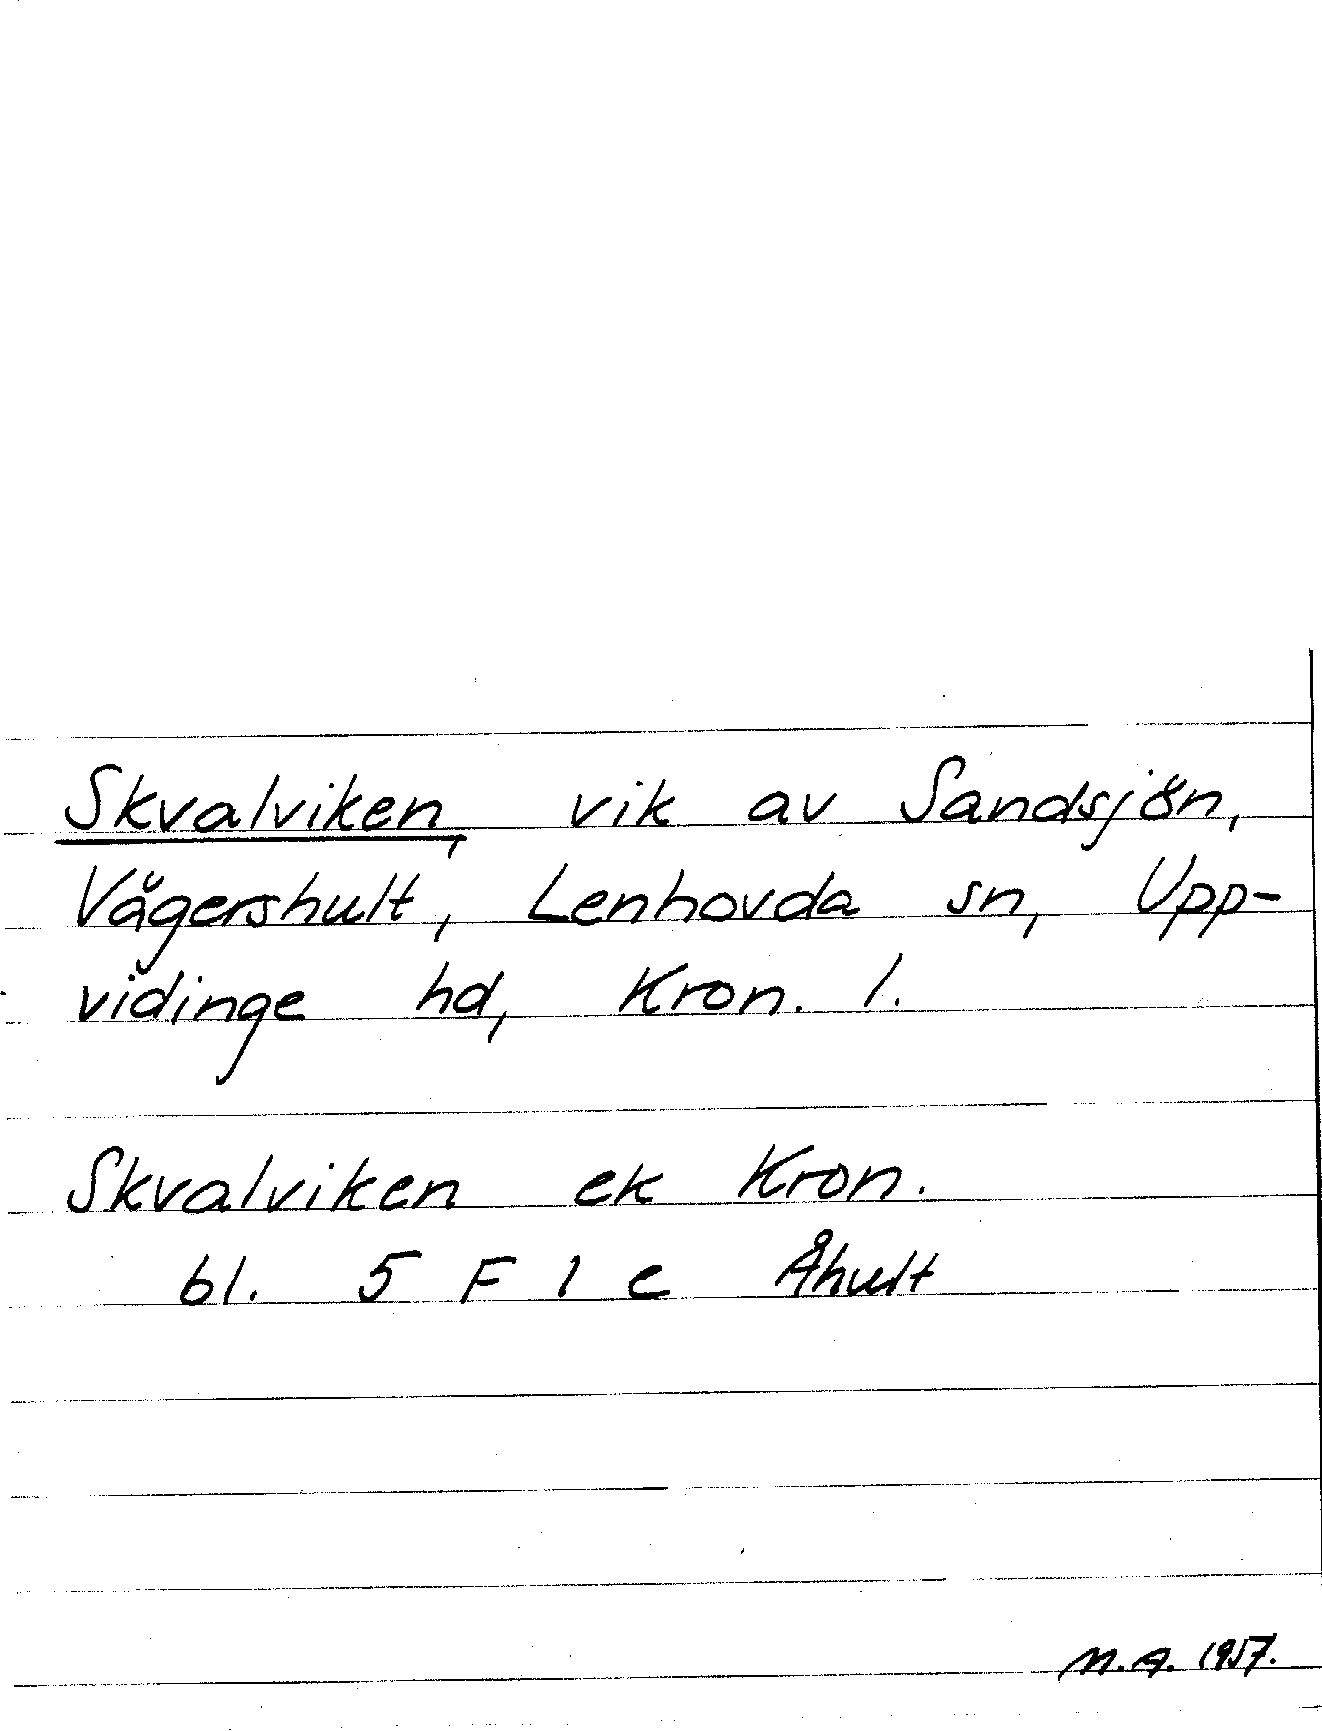 Skvalviken, vik av Sandsjön,
Vågershult, Lenhovda sn, Upp-
vidinge hd, Kron. l.
Skvalviken ek Kron.
bl. 5 F 1 c Åhult
M.A. 1957.